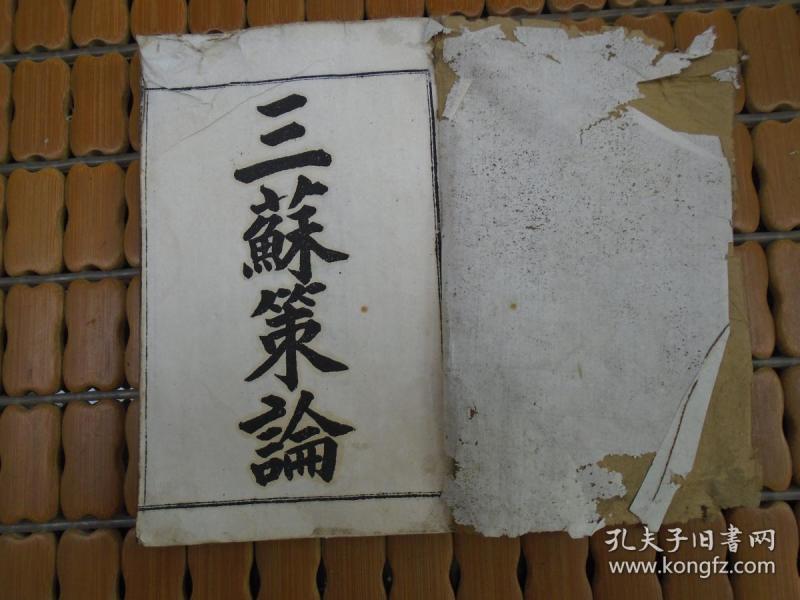 三蘇策論
孔夫子旧書网
www.kongfz.com